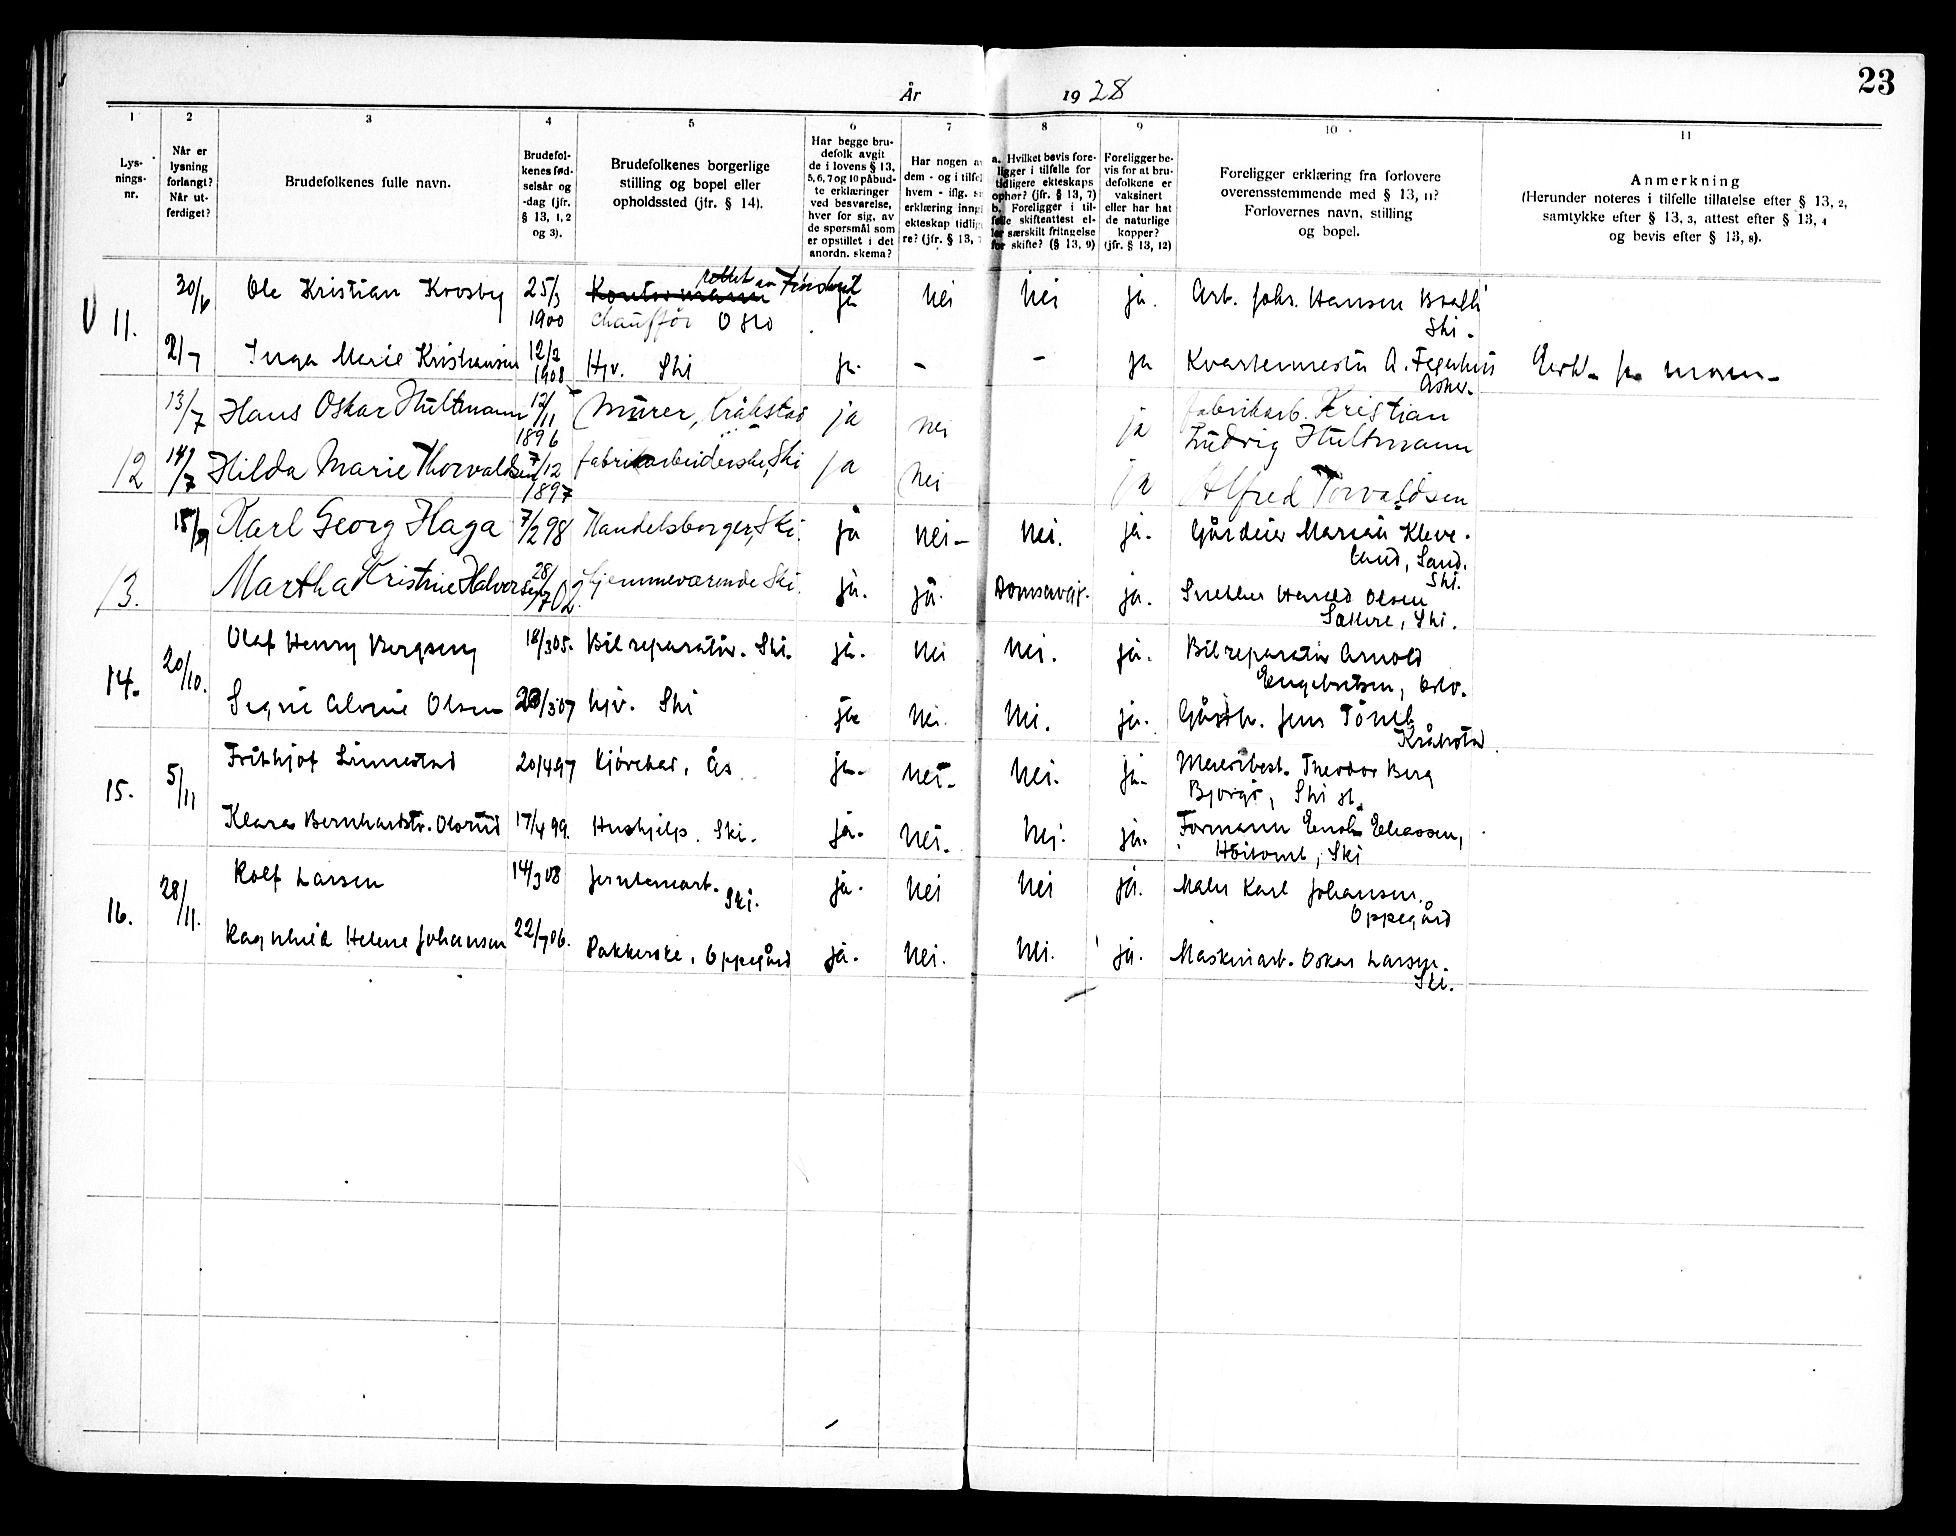 23
År 1928
1 2 3 4 5 6 7 8 9 10 11
Lys-
nings-
nr.
Når er
lysning
forlangt?
Når ut-
ferdiget?
Brudefolkenes fulle navn.
Brudefol-
kenes fød-
selsår og
-dag (jfr.
§ 13, 1, 2
og 3).
Brudefolkenes borgerlige
stilling og bopel eller
opholdssted (jfr. § 14).
Har begge bru-
defolk avgit
de i lovens § 13,
5, 6, 7 og 10 påbud-
te erklæringer
ved besvarelse,
hver for sig, av
de spørsmål som
er opstillet i det
anordn. skema?
Har nogen av
dem - og i tilfel
hvem - iflg. s
erklæring inng
ekteskap tidlig
re? (jfr. § 13, 7
a. Hvilket bevis fore-
ligger i tilfelle for
tidligere ekteskaps
ophør? (jfr. § 13, 7)
b. Foreligger i til-
felle skifteattest el-
ler særskilt fritagelse
for skifte? (§ 13, 9)
Foreligger be-
vis for at bru-
defolkene er
vaksinert
eller har hat
de naturlige
kopper?
(jfr. § 13, 12)
Foreligger erklæring fra forlovere
overensstemmende med § 13, 11?
Forlovernes navn, stilling
og bopel.
Anmerkning
(Herunder noteres i tilfelle tillatelse efter § 13, 2,
samtykke efter § 13, 3, attest efter § 13, 4
og bevis efter § 13, 8).
11. 30/6 Ole Kristian Krosby 25/3 1900 Kontormann rettet av
chauffør Oslo ja nei nei ja. Arb. Johs. Hansen
Ski.
2/7 Inga Marie Kristiansen 12/2 1908 Hjv. Ski ja. - - ja Kvartermester A.
Asker.
13/7 Hans Oskar Hultmann 12/11 1896 Murer, Kråkstad ja nei ja fabrikarb. Kristian
Ludvig Hultmann
12 14/7 Hilda Marie Thorvaldsen 7/12 1897 fabrikarbeiderske, Ski ja nei ja Alfred Torvaldsen
15/9 Karl Georg Haga 7/2 98 Handelsborger, Ski. ja nei- nei. ja. Gårdeier Marius Kleve-
land, Sand.
Ski.
13. Martha Kristine Halvorsen 28/7 02. hjemmeværende Ski. ja. ja. ja. Snekker Harald Olsen
Sættre, Ski.
14. 20/10. Olaf Henry Bergseng 18/3 05. Bilreparatør. Ski. ja. nei nei. ja. Bilreparatør Arnold
Engebretsen, Oslo.
Signe Olsen 5 07 hjv. Ski ja nei. nei. ja. Gårdbr. Jens
Kråkstad.
15. 5/11 Frithjof Linnestad 20/4 97 Kjørekar, Ås ja. nei. nei. ja. Meieribest. Theodor Berg
Ski st.
Klara Bernhardstr. Olsrud 17/4 99. Hushjelp. Ski. ja. nei. nei. ja. Formann Enok Eliassen,
Ski
16. 28/11. Rolf Larsen 14/3 08 Jernbanearb.
Ski. ja. nei nei ja. Maler Karl Johansen.
Oppegård
Ragnhild Helene Johansen 22/7 06. Pakkerske, Oppegård ja. nei. nei. ja. Maskinarb. Oskar Larsen.
Ski.